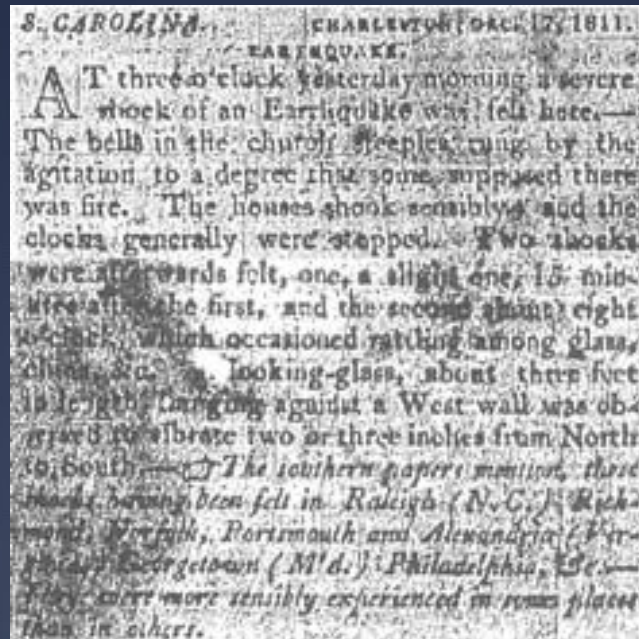 S. CAROLINA. CHARLESTON, DEC. 17, 1811.
EARTHQUAKE.
AT three o'clock yesterday morning a severe
shock of an Earthquake was felt here.—
The bells in the church steeples rung by the
agitation to a degree that some supposed there
was fire. The houses shook sensibly, and the
clocks generally were stopped. Two shocks
were afterwards felt, one, a slight one, 15 min-
utes after the first, and the second about eight
o'clock, which occasioned rattling among glass,
china, &c. looking-glass, about three feet
in length, hanging against a West wall was ob-
served to vibrate two or three inches from North
to South.—☞ The southern papers mention, these
shocks having been felt in Raleigh (N.C.) Rich-
mond, Norfolk, Portsmouth and Alexandria (Vir-
ginia,) Georgetown (M'd.) Philadelphia, &c.—
They were more sensibly experienced in some places
than in others.